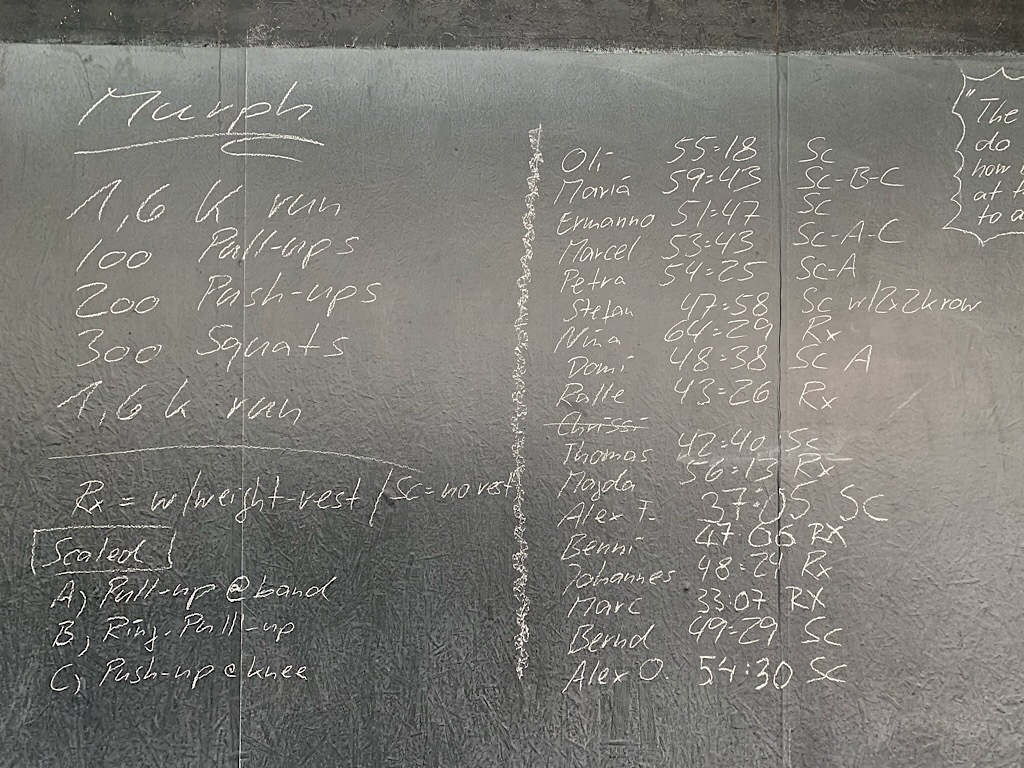 Murph
1,6 K run
100 Pull-ups
200 Push-ups
300 Squats
1,6 k run
Rx = w/weight-vest / Sc = no vest
Scaled
A) Pull-up @ band
B) Ring-Pull-up
C) Push-up @ knee
Oli 55:18 Sc
Maria 59:43 Sc-B-C
Ermanno 51:47 Sc
Marcel 53:43 Sc-A-C
Petra 54:25 Sc-A
Stefan 47:58 Sc w/2x2k row
Nina 64:29 Rx
Domi 48:38 Sc A
Ralle 43:26 Rx
Chrissi
Thomas 42:40 Sc
Magda 56:13 Rx
Alex T. 37:05 Sc
Benni 47:06 RX
Johannes 48:24 Rx
Marc 33:07 RX
Bernd 49:29 Sc
Alex O. 54:30 Sc
"The
do
how
at
to